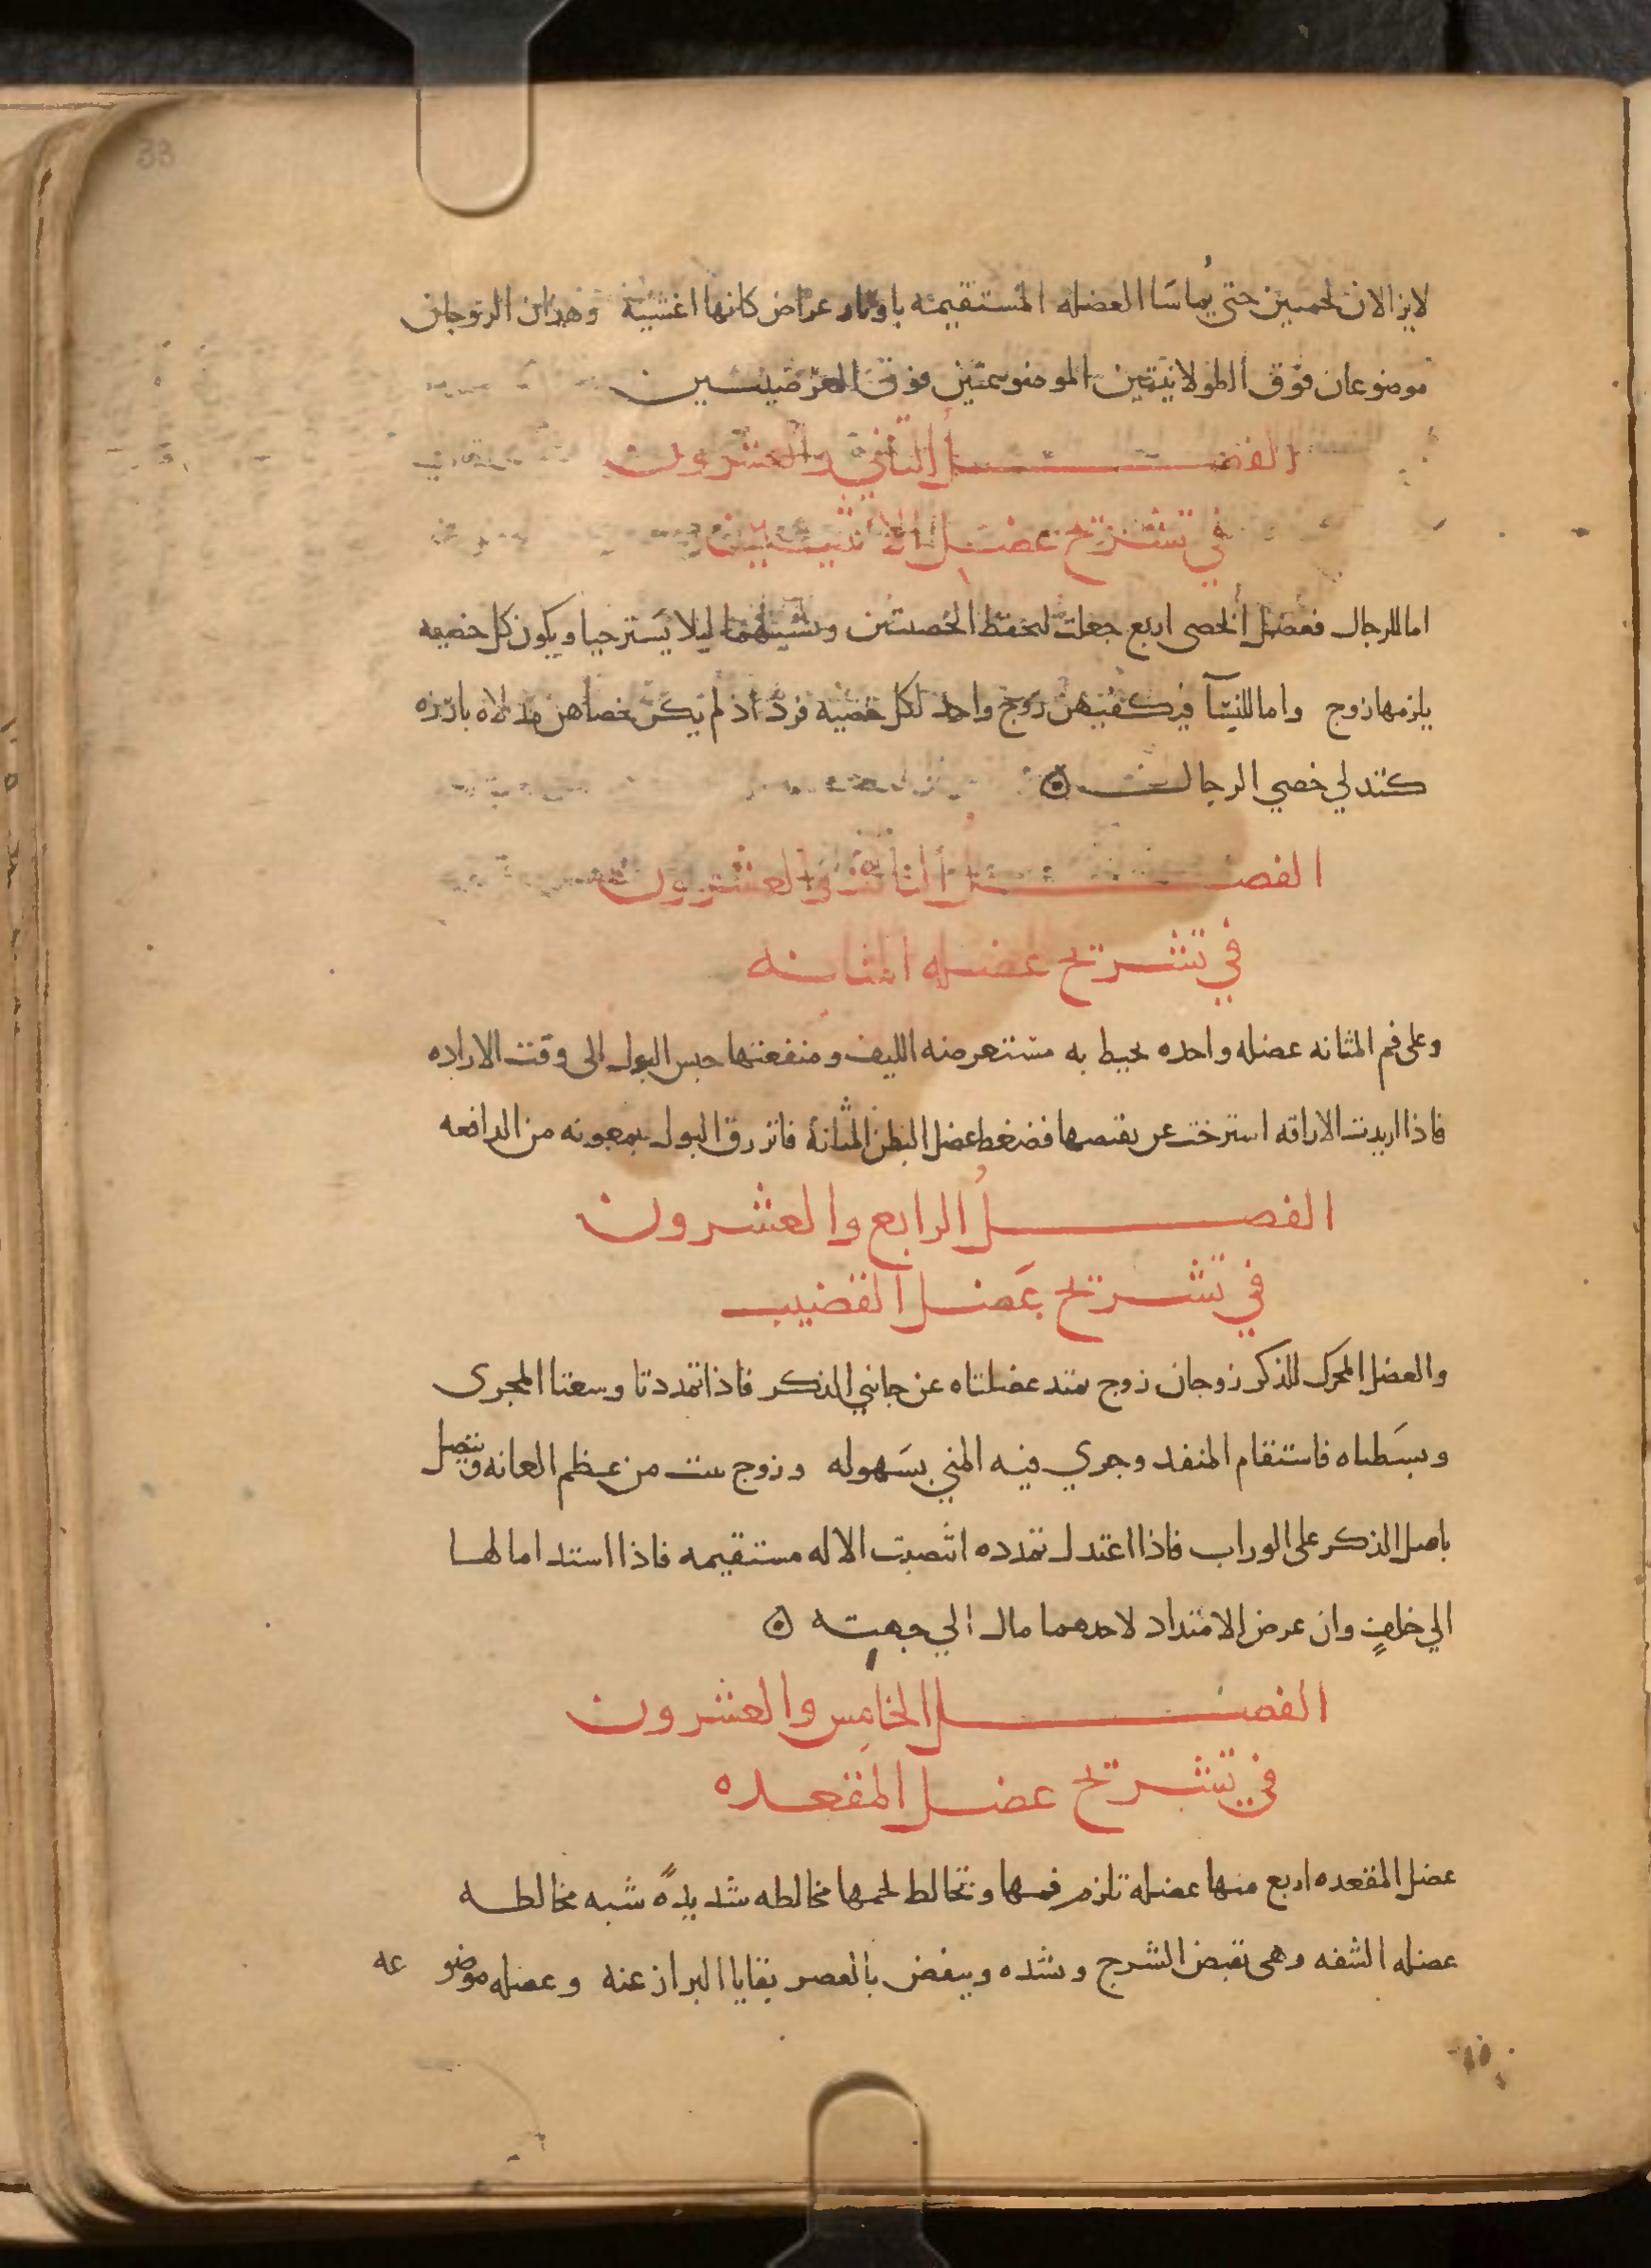 33
لايزالان لحميين حتى يُماسّا العضله المستقيمه باوتار عراض كانها اغشيه وهذان الزوجان
موضوعان فوق الطولانيتين الموضوعتين فوق العرضيتين
الفصل الثاني والعشرون
في تشريح عضل الانثيين
اما للرجال فعضل الخصى اربع جعلت لتحفظ الخصيتين وتشيلهما ليلا يسترخيا ويكون كل خصيه
يلزمها زوج واما للنسآ فيكفيهن زوج واحد لكل خصيه فرد اذ لم تكن خصاهن مدلاه بارزه
كتدلي خصي الرجال
الفصل الثالث والعشرون
في تشريح عضله المثانه
وعلى فم المثانه عضله واحده تحيط به مستعرضه الليف ومنفعتها حبس البول الى وقت الاراده
فاذا اريدت الاراقه استرخت عن تقبضها فضغط عضل البطن المثانة فانزرق البول بمعونه من الدافعه
الفصلُ الرابع والعشرون
في تشريح عَضل القضيب
والعضل المحرك للذكر زوجان زوج تمتد عضلتاه عن جانبي الذكر فاذا تمددتا وسعتا المجرى
وبسَطتاه فاستقام المنفد وجري فيه المني بسَهوله وزوج ينبت من عظم العانه ويتصل
باصل الذكر على الوراب فاذا اعتدل تمدده انتصبت الاله مستقيمه فاذا استد امالها
الي خلفٍ وان عرض الامتداد لاحدهما مال الي جهته
الفصل الخامس والعشرون
في تشريح عضل المقعده
عضل المقعده اربع منها عضله تلزم فمها وتخالط لحمها مخالطه شديدةً شبه مخالطه
عضله الشفه وهى تقبض الشرج وتشده وينفض بالعصر بقايا البراز عنه وعضله موضو عه